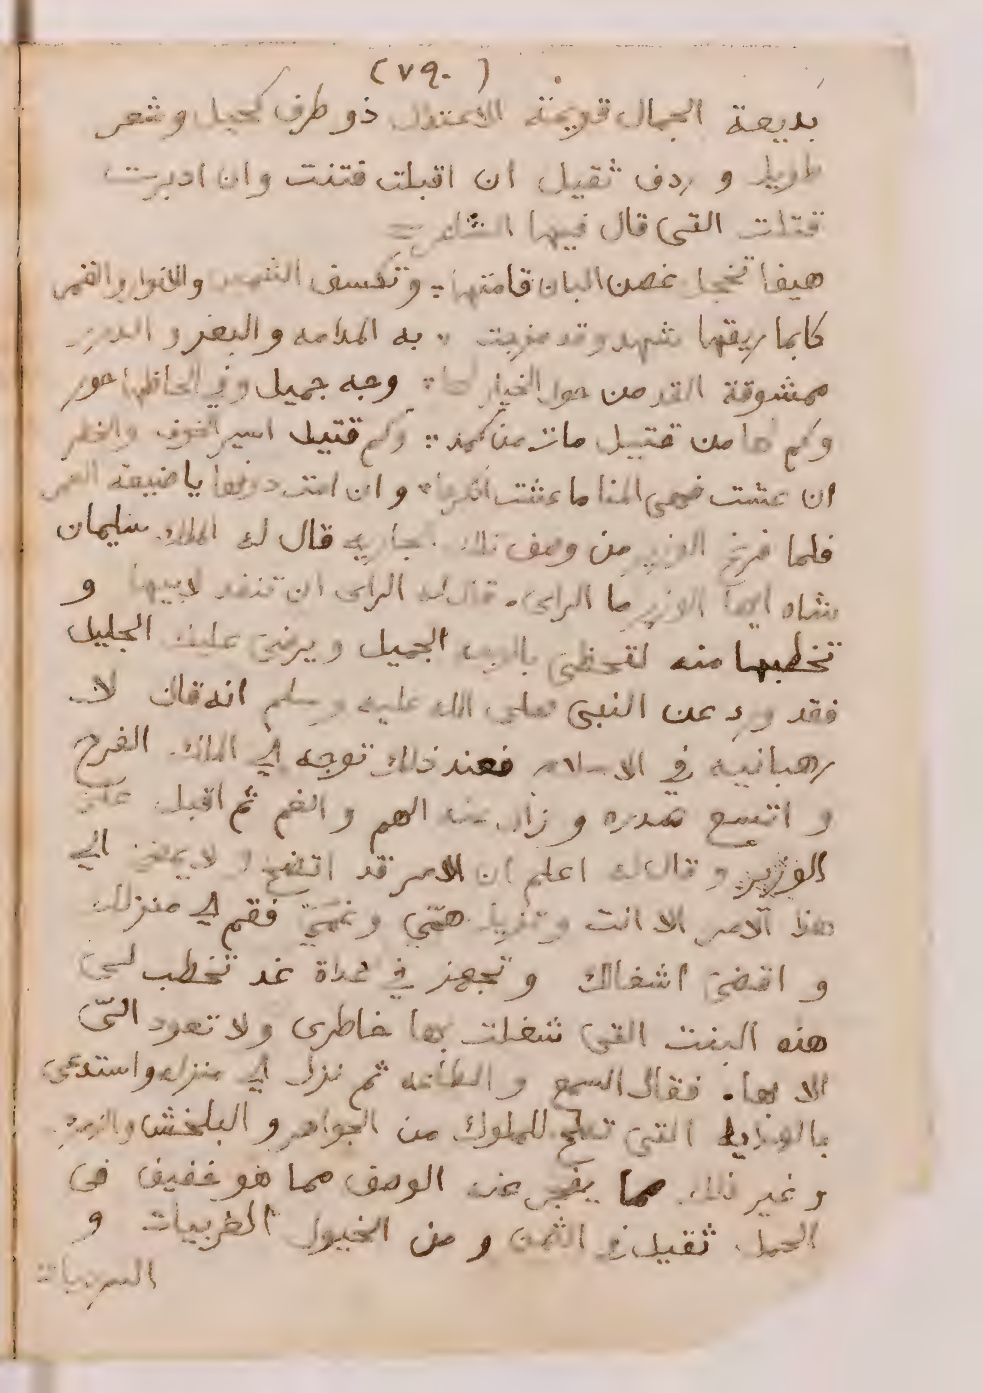 (٧٩٠)
بديعة الجمال قويمة الاعتدال ذو طرف كحيل وشعر
طويل و ردف ثقيل ان اقبلت فتنت وان ادبرت
قتلت التى قال فيها الشاعر
هيفا تخجل غصن البان قامتها وتكسف الشمس والانوار والقمر
كانما ريقها شهد وقد مزجت به المدامه والثغر و الدرر
ممشوقة القد من حور الجنان لها وجه جميل وفي الحاظها حور
وكم لها من قتيل مات من كمد وكم قتيل اسير الخوف والخطر
ان عشت فهى المنا ما عشت اذكرها وان امت دونها يا ضيعة العمر
فلما فرغ الوزير من وصف تلك الجاريه قال له الملك سليمان
شاه ايها الوزير ما الراى. قال له الراى ان تنفذ لابيها و
تخطبها منه لتحظى بالوجه الجميل ويرضى عليك الجليل
فقد ورد عن النبى صلى الله عليه وسلم انه قال لا
رهبانيه في الاسلام فعند ذلك توجه الي الملك الفرح
و اتسع صدره و زال عنه الهم و الغم ثم اقبل على
الوزير و قال له اعلم ان الامر قد اتضح و لا يمضى الي
هذا الامر الا انت و تزيل همّي و غمّي فقم الي منزلك
و اقضى اشغالك و تجهز في غداة غد تخطب لى
هذه البنت التى شغلت بها خاطرى ولا تعود اليّ
الا بها. فقال السمع و الطاعه ثم نزل الي منزله واستدعى
بالهدايا التى تصلح للملوك من الجواهر و البلخش والزمرد
و غير ذلك مما يعجز عنه الوصف مما هو خفيف فى
الحمل ثقيل في الثمن و من الخيول العربيات و